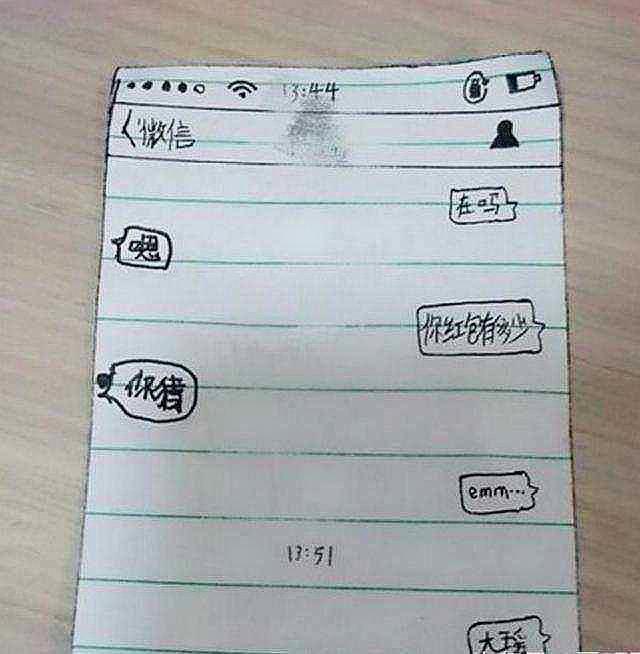 13:44
微信
在吗
嗯
你红包有多少
你猜
emm…
13:51
大瑶